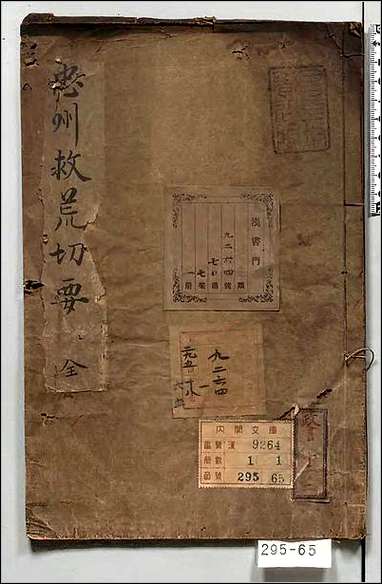 忠州救荒切要
全
漢書門
類
九二六四號
函
七架
一冊
九二六四
一
内閣文庫
番號 漢 9264
冊數 1 1
函號 295 65
295-65